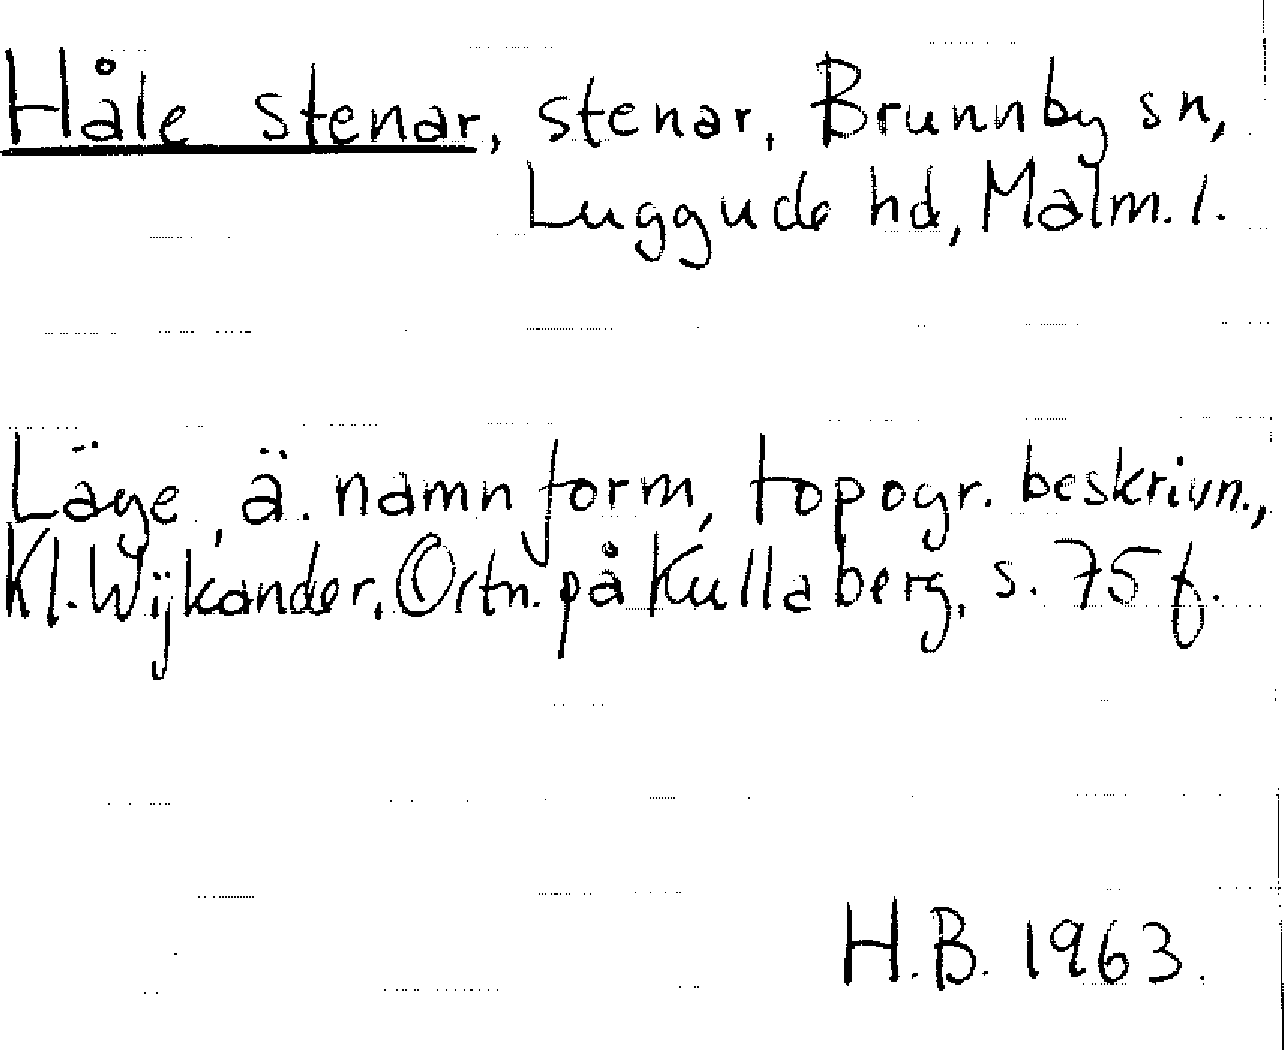 Håle stenar, stenar, Brunnby sn,
Luggude hd, Malm. l.
Läge, ä. namnform, topogr. beskrivn.,
Kl. Wijkander, Ortn. på Kullaberg, s. 75 f.
H.B. 1963.